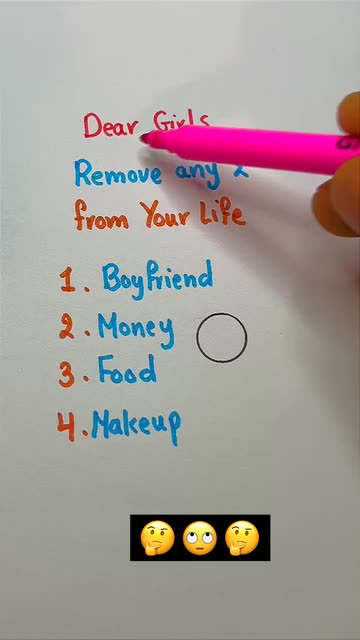 Dear Girls
Remove any 2
from Your Life
1. Boyfriend
2. Money
3. Food
4. Makeup